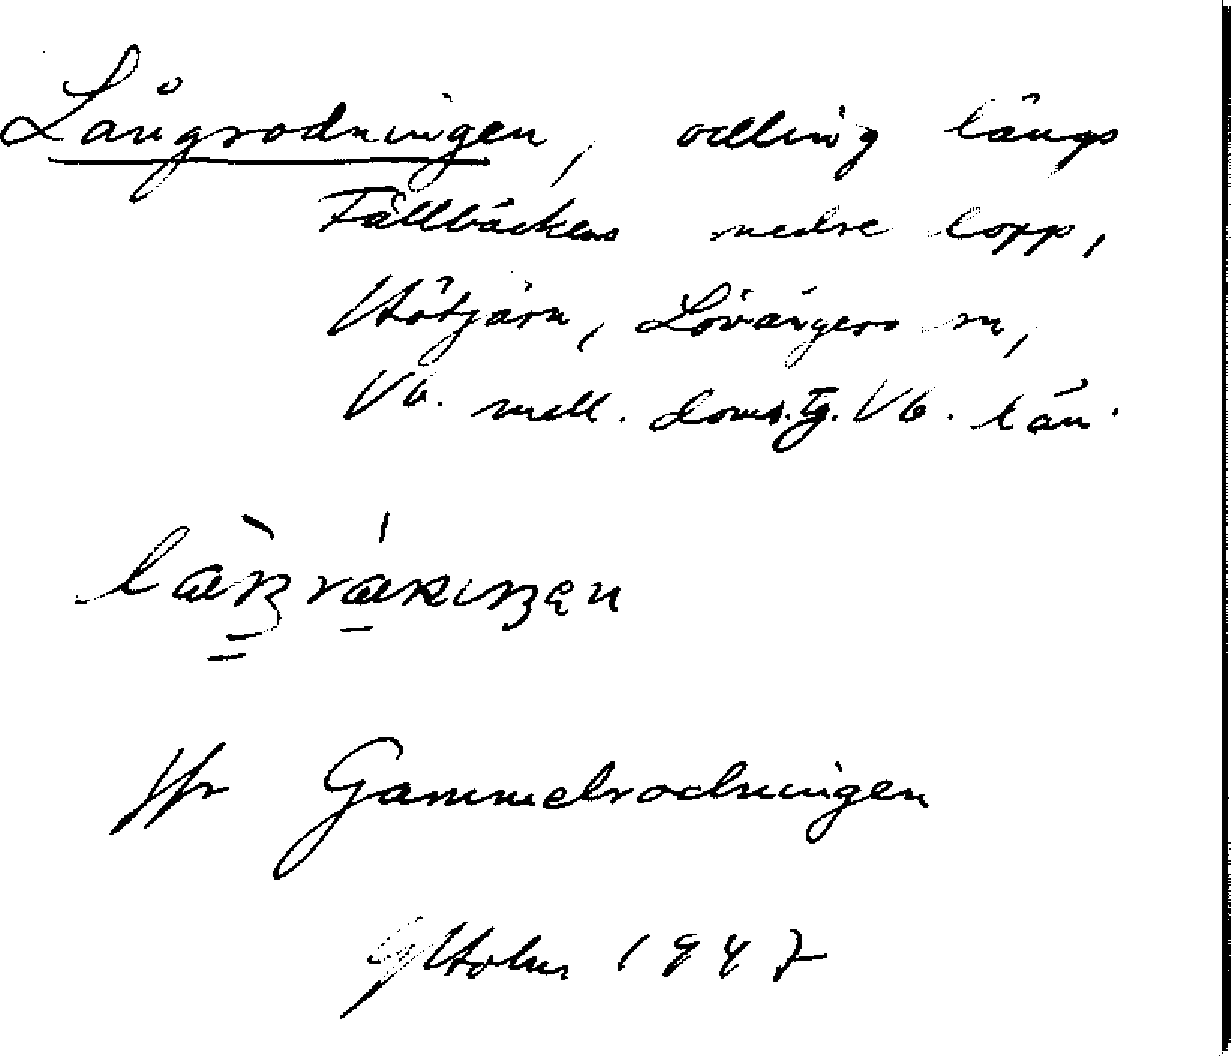 Långrodningen, odling längs
Fällbäckens nedre lopp,
Hötjärn, Lövångers sn,
Vb. mell. doms.tg. Vb. län.
Jfr Gammelrodningen
Holm 1947